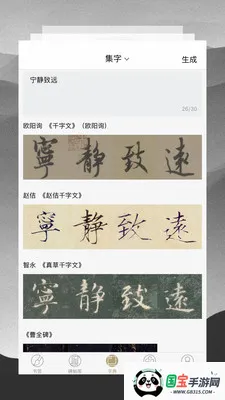 集字
生成
宁静致远
26/30
欧阳询 《千字文》（欧阳询）
寧静致遠
赵佶 《赵佶千字文》
寧静致遠
智永 《真草千字文》
寧静致遠
《曹全碑》
国宝手游网
WWW.GB315.COM